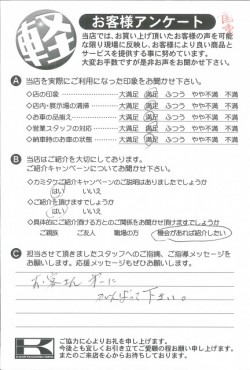 軽
お客様アンケート
当店では、お買い上げ頂いたお客様の声を可能
な限り現場に反映し、お客様により良い商品と
サービスを提供できます事に努めております。
大変お手数ですが是非お声をお聞かせ下さい。
A 当店を実際にご利用になった印象をお聞かせ下さい。
◇店の印象 ・・・・・・ 大満足 満足 ふつう やや不満 不満
◇店内・展示場の清掃 ・・・・ 大満足 満足 ふつう やや不満 不満
◇お車の品揃え ・・・・・ 大満足 満足 ふつう やや不満 不満
◇営業スタッフの対応 ・・・・ 大満足 満足 ふつう やや不満 不満
◇納車時のお車の状態 ・・・・ 大満足 満足 ふつう やや不満 不満
B 当店はご紹介を大切にしております。
ご紹介キャンペーンについてお聞かせ下さい。
◇カミタケご紹介キャンペーンのご説明はありましたでしょうか
はい いいえ
◇ご紹介を頂けますでしょうか
はい いいえ
◇具体的にご紹介頂ける方とのご関係をお聞かせ頂けますでしょうか
ご親族 ご友人 職場の方 機会があれば紹介したい
C 担当させて頂きましたスタッフへのご指摘、ご指導メッセージを
お願いします。応援メッセージもぜひお願いします。
お客さん第一に
がんばって下さい。
K
ご協力に心よりお礼を申し上げます。
今後とも宜しくお引き立てご愛顧の程お願い申し上げます。
またのご来店を心からお待ちしております。